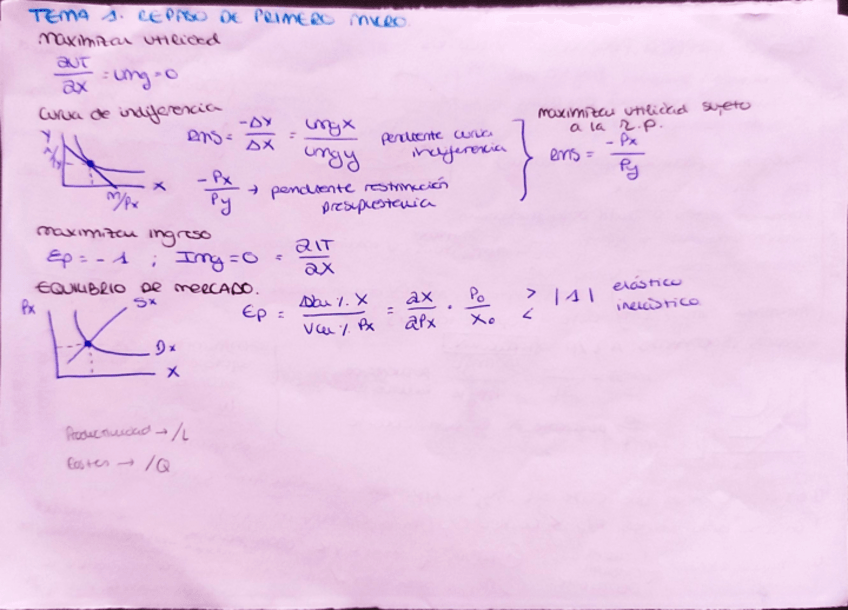 TEMA 1. REPASO DE PRIMERO MICRO.
maximizar utilidad
∂UT/∂X = Umg = 0
curva de indiferencia
Y
M/Py
X
M/Px
RMS = -ΔY/ΔX = UmgX/Umgy pendiente curva indiferencia
-Px/Py → pendiente restricción presupuestaria
maximizar utilidad sujeto
a la R.P.
RMS = -Px/Py
maximizar ingreso
Ep = -1 ; Img = 0 = ∂IT/∂X
EQUILIBRIO DE MERCADO.
Px
Sx
Dx
X
Ep = Var % X/Var % Px = ∂X/∂Px · Po/Xo > |1| elástico
< inelástico
Productividad → /L
Costes → /Q